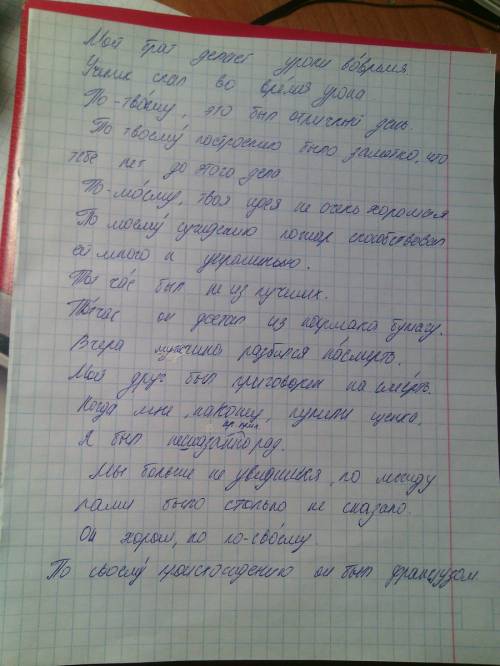 Мой брат делает уроки во́время.
Ученик спал во вре́мя урока
По-тво́ему, это был отличный день.
По твоему́ настроению было заметно, что
тебе нет до этого дела
По-мо́ему, твоя идея не очень хорошая
По моему́ суждению пожар способствовал
ей много к украшению.
Тот ча́с был не из лучших.
То́тчас он достал из кармана бумагу.
Вчера мужчина разбился на́смерть.
Мой друг был приговорен на сме́рть.
Когда мне, наконец, купили щенка,
Я был несказанно рад.
Мы больше не увидимся, но между
нами было столько не сказано.
Он хорош, но по-сво́ему.
По своему́ происхождению он был французом.